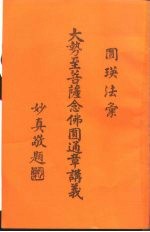 圓瑛法彙
大勢至菩薩念佛圓通章講義
妙真敬題